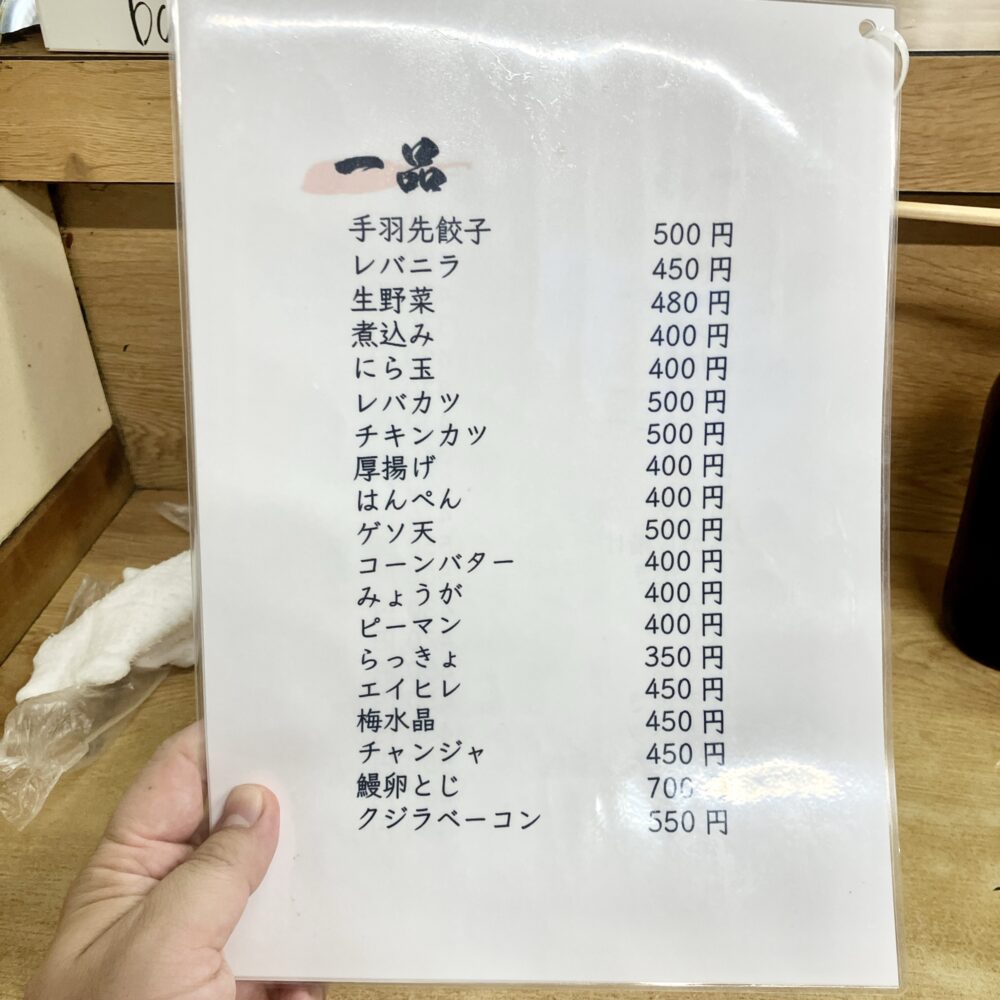 一品
手羽先餃子 500円
レバニラ 450円
生野菜 480円
煮込み 400円
にら玉 400円
レバカツ 500円
チキンカツ 500円
厚揚げ 400円
はんぺん 400円
ゲソ天 500円
コーンバター 400円
みょうが 400円
ピーマン 400円
らっきょ 350円
エイヒレ 450円
梅水晶 450円
チャンジャ 450円
鰻卵とじ 700
クジラベーコン 550円